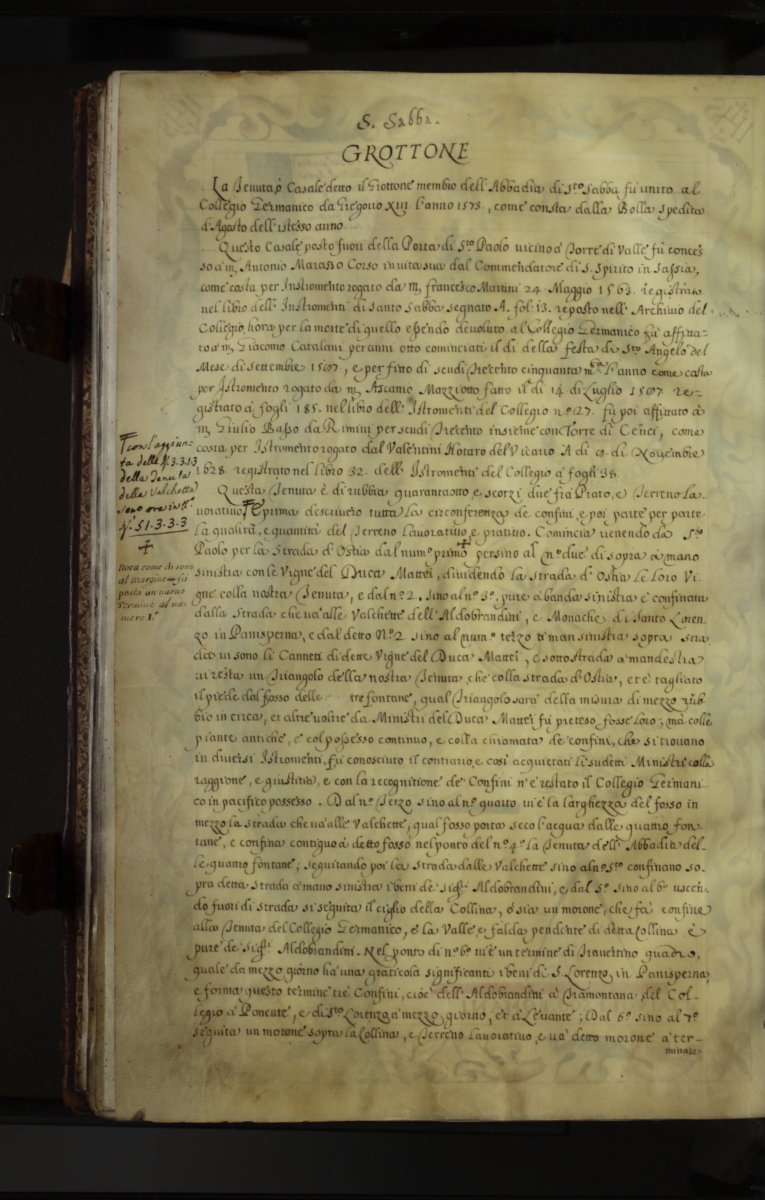 S. Sabba.
GROTTONE
La Tenuta, ò Casale detto il Grottone membro dell'Abbadia di S.to Sabba fù unito al
Collegio Germanico da Gregorio XIII l'anno 1573, come consta dalla Bolla spedita
d'Agosto dell'istesso anno
Questo Casale posto fuori della Porta di S.to Paolo vicino à Torre di Valle fù conces
so à m. Antonio Marasso Corso in vita sua dal Commendatore di S. Spirito in Sassia,
come costa per Instromento rogato da m. francesco Martini 24 Maggio 1563. registrato
nel libro dell'Instromenti di Santo Sabba segnato A. fol: 13. reposto nell'Archivio del
Collegio, hora per la morte di quello essendo devoluto al Collegio Germanico fù affitta-
to à m. Giacomo Catalani per anni otto cominciati il di della festa di S.to Angelo del
Mese di Settembre, e per fitto di scudi trecento cinquanta l'anno come costa
per Istromento rogato da m. Ascanio Mazziotto fatto il di 14 di Luglio re-
gistrato à fogli 185. nel libro dell'Istromenti del Collegio n.o 27. fù poi affittato à
m. Giulio Basso da Rimini per scudi trecento insieme con Torre di Cenci, come
costa per Istromento rogato dal Valentini Notaro del Vicario A di 9 di Novembre
1628. registrato nel libro 32. dell'Istromenti del Collegio à fogli 38.
Questa Tenuta è di rubbia quarantotto e scorzi due frà Prato, e Terreno la-
vorativo, e prima descriverò tutta la circonferenza de confini, e poi parte per parte
la qualità, e quantità del Terreno Lavorativo, e prativo. Comincia venendo da S.to
Paolo per la Strada d'Ostia dal num.o primo persino al n.o due di sopra à mano
sinistra con le Vigne del Duca Mattei, dividendo la strada d'Ostia le loro Vi-
gne colla nostra Tenuta, e dal n.o 2. sino al n.o 3.o pure à banda sinistra è confinata
dalla Strada che và alle Valchette dell'Aldobrandini, e Monache di Santo Loren-
zo in Panisperna, e dal detto N.o 2 sino al num.o terzo à man sinistra sopra
vi sono li Canneti di dette Vigne del Duca Mattei, e sotto strada à man destra
vi resta un Triangolo della nostra Tenuta, che colla strada d'Ostia, et è tagliato
il piede dal fosso delle tre fontane, qual Triangolo sarà della misura di mezzo rub-
bio in circa, et altre volte da Ministri del Duca Mattei fù preteso fosse loro; mà colle
piante antiche, e col possesso continuo, e colla chiamata de confini, che si trovano
in diversi Istromenti, fù conosciuto il contrario, e così acquietati li sudetti Ministri colla
raggione, e giustitia, e con la recognitione de Confini n'è restato il Collegio Germani-
co in pacifico possesso. Dal n.o Terzo sino al n.o quarto vi è la larghezza del fosso in
mezzo la strada che và alle Valchette, qual fosso porta seco l'acqua dalle quattro fon-
tane, e confina contiguo à detto fosso nel ponto del n.o 4.o la Tenuta dell'Abbadia del-
le quattro fontane; seguitando poi la strada dalle Valchette sino al n.o 5.to confinano so-
pra detta Strada à mano sinistra i beni de' sig.ri Aldobrandini, e dal 5.o sino al 6.o uscen-
do fuori di strada si seguita il ciglio della Collina, ò sia un morone, che fà confine
alla Tenuta del Collegio Germanico, e la Valle, e falda pendente di detta Collina è
pure de' Sig.ri Aldobrandini. Nel ponto di n.o 6.o vi è un termine di travertino quadro,
quale da mezzo giorno hà una graticola significante i beni di S. Lorenzo in Panisperna,
e forma questo termine trè Confini, cioè dell'Aldobrandini à Tramontana, del Col-
legio à Ponente, e di S.to Lorenzo à mezzo giorno, et è à Levante; Dal 6.o sino al 7.o
seguita un morone sopra la Collina, e Terreno Lavorativo, e và detto morone à ter-
minare
con l'aggiun-
ta delle 3.3.1.3
della Tenuta
delle Valchette
sono ora in tt.o
51.3.3.3
Nota come di sono
al margine fù
posto un nuovo
Termine al nu-
mero 1.o